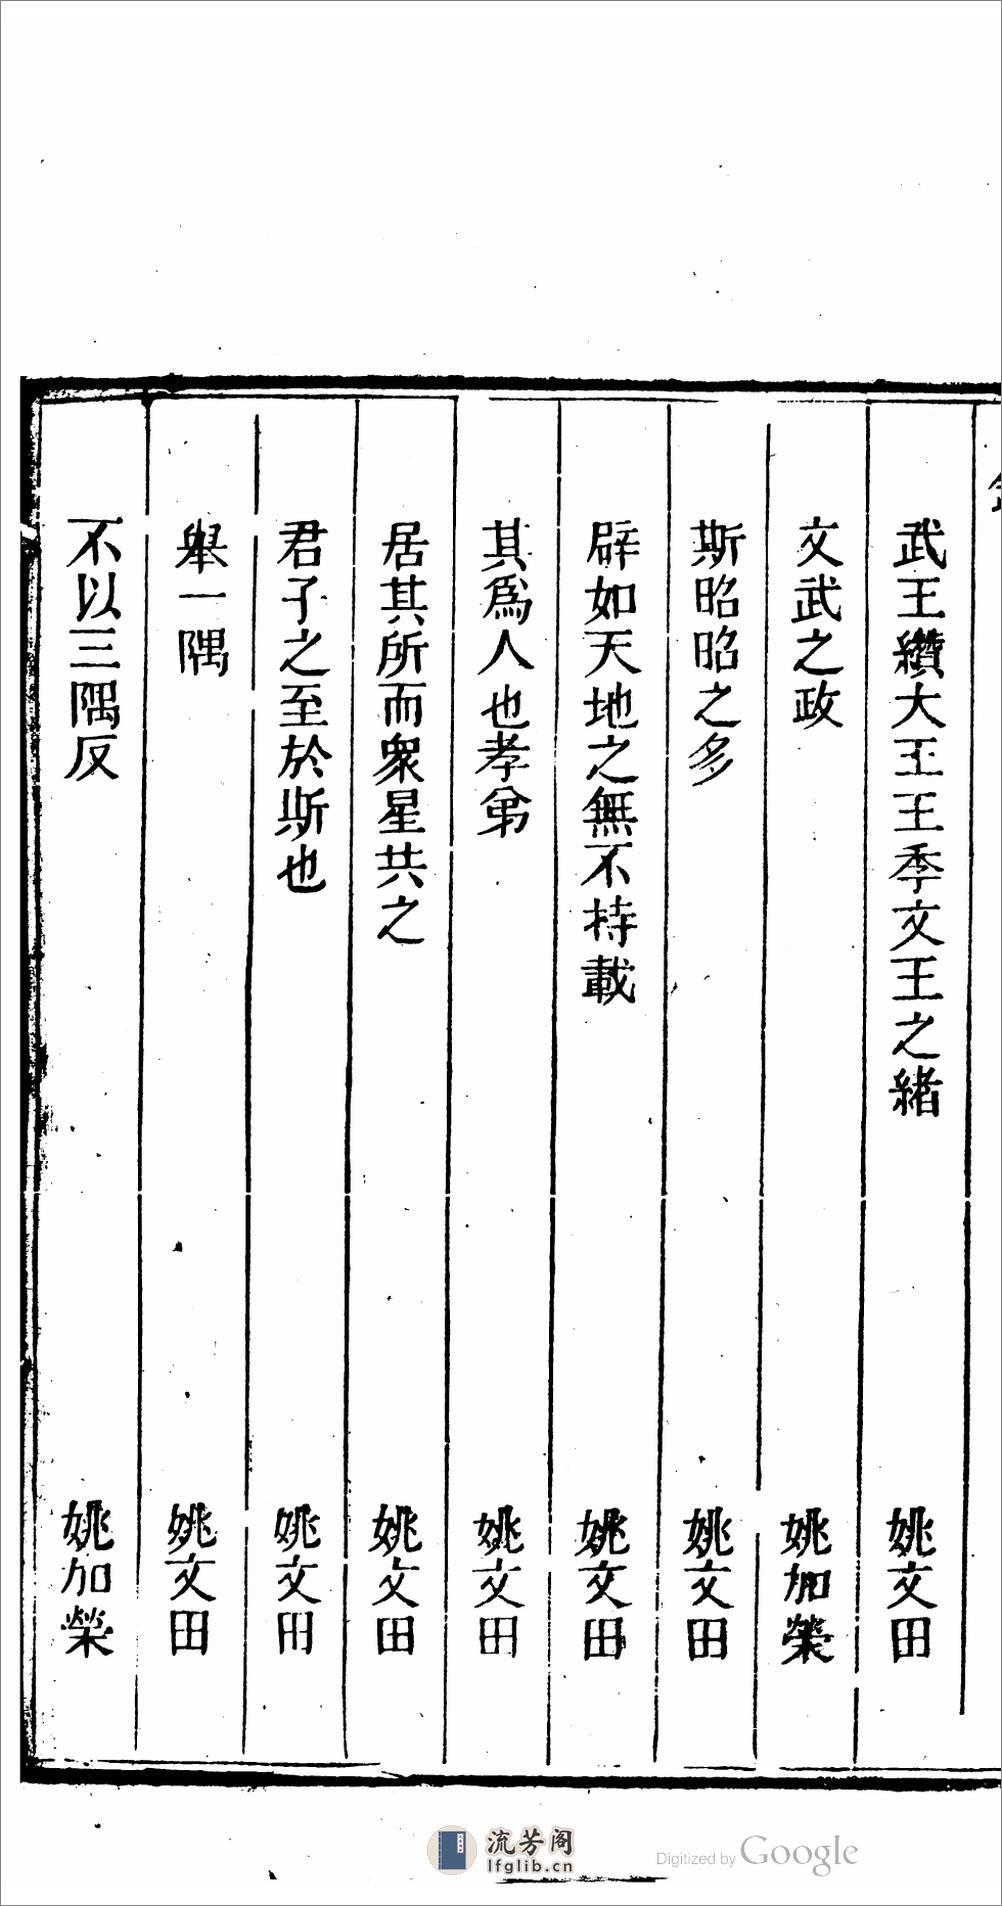 武王纘大王王季文王之緒 姚文田
文武之政 姚加榮
斯昭昭之多 姚文田
辟如天地之無不持載 姚文田
其爲人也孝弟 姚文田
居其所而衆星共之 姚文田
君子之至於斯也 姚文田
舉一隅 姚文田
不以三隅反 姚加榮
流芳阁
lfglib.cn
Digitized by Google